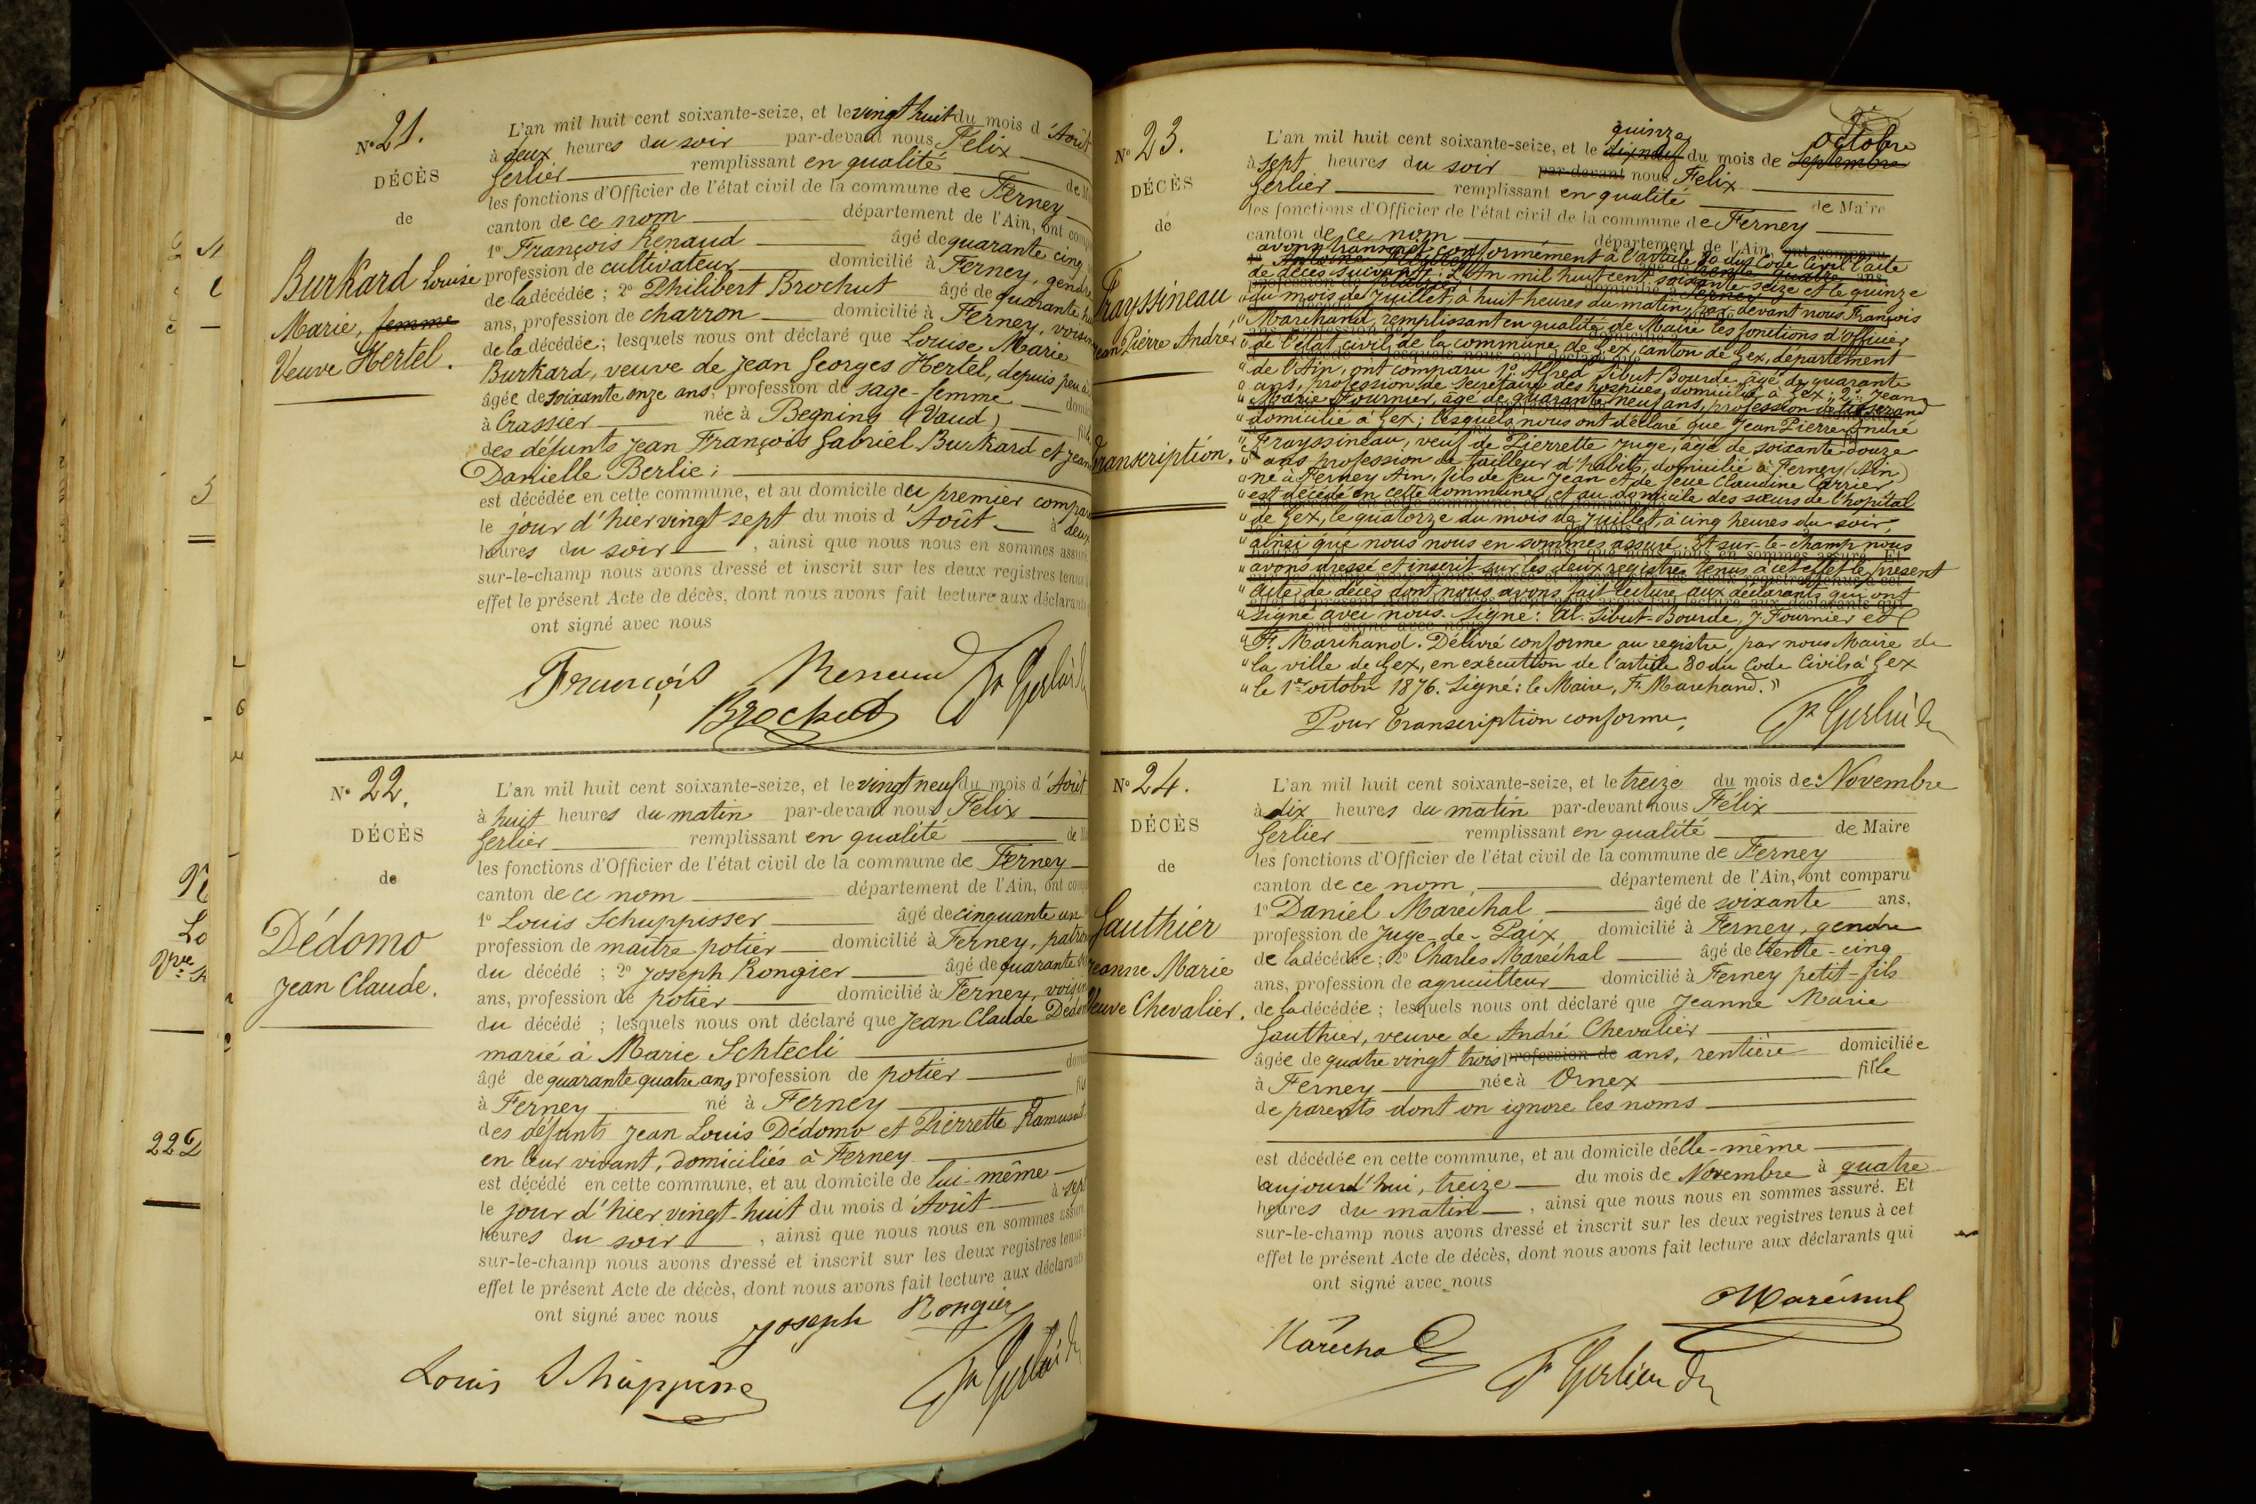 N° 21.
DÉCÈS
de
Burkard Louise
Marie, femme
Veuve Hertel.
L'an mil huit cent soixante-seize, et le vingt huit du mois d'Août
à deux heures du soir par-devant nous Félix
Gerlier remplissant en qualité de
les fonctions d'Officier de l'état civil de la commune de Ferney
canton de ce nom département de l'Ain, ont
1° François Renaud âgé de quarante cinq
profession de cultivateur domicilié à Ferney, gendre
de la décédée; 2° Philibert Brochut âgé de quarante
ans, profession de charron domicilié à Ferney, voisin
de la décédée; lesquels nous ont déclaré que Louise Marie
Burkard, veuve de Jean Georges Hertel, depuis peu à
âgée de soixante onze ans, profession de sage-femme
à Crassier née à Begning (Vaud)
des défunts Jean François Gabriel Burkard et Jean
Danielle Berlie;
est décédée en cette commune, et au domicile du premier
le jour d'hier vingt-sept du mois d'Août à deux
heures du soir, ainsi que nous nous en sommes assuré
sur-le-champ nous avons dressé et inscrit sur les deux registres tenus
effet le présent Acte de décès, dont nous avons fait lecture aux déclarants
ont signé avec nous
François Renaud
Brochut
N° 22.
DÉCÈS
de
Dédomo
Jean Claude.
L'an mil huit cent soixante-seize, et le vingt neuf du mois d'Août
à huit heures du matin par-devant nous Félix
Gerlier remplissant en qualité de
les fonctions d'Officier de l'état civil de la commune de Ferney
canton de ce nom département de l'Ain, ont
1° Louis Schuppisser âgé de cinquante un
profession de maître potier domicilié à Ferney, patron
du décédé; 2° Joseph Rongier âgé de quarante
ans, profession de potier domicilié à Ferney, voisin
du décédé; lesquels nous ont déclaré que Jean Claude Dédomo
marié à Marie Schtecli
âgé de quarante quatre ans profession de potier
à Ferney né à Ferney fils
des défunts Jean Louis Dédomo et Pierrette Ramusat
en leur vivant, domiciliés à Ferney
est décédé en cette commune, et au domicile de lui-même
le jour d'hier vingt-huit du mois d'Août à sept
heures du soir, ainsi que nous nous en sommes assuré
sur-le-champ nous avons dressé et inscrit sur les deux registres tenus
effet le présent Acte de décès, dont nous avons fait lecture aux déclarants
ont signé avec nous
Joseph Rongier
Louis
N° 23.
DÉCÈS
de
Frayssineau
Jean Pierre André
Transcription.
quinze octobre
L'an mil huit cent soixante-seize, et le dixneuf du mois de Septembre
à sept heures du soir par-devant nous Félix
Gerlier remplissant en qualité de Maire
les fonctions d'Officier de l'état civil de la commune de Ferney
canton de ce nom département de l'Ain, ont comparu
avons transcrit conformément à l'article 80 du Code Civil l'acte
de décès suivant: "L'An mil huit cent soixante-seize et le quinze
"du mois de Juillet, à huit heures du matin, par devant nous François
"Marchand, remplissant en qualité de Maire les fonctions d'Officier
"de l'état civil de la commune de Gex, canton de Gex, département
"de l'Ain, ont comparu 1° Alfred Sibut Bourde, âgé de quarante
" ans, profession de secrétaire des hospices, domicilié à Gex; 2° Jean
"Marie Fournier, âgé de quarante neuf ans, profession de tisserand
"domicilié à Gex; lesquels nous ont déclaré que Jean Pierre André
"Frayssineau, veuf de Pierrette Juge, âgé de soixante douze
" ans profession de tailleur d'habits, domicilié à Ferney (Ain)
"né à Ferney Ain, fils de feu Jean et de feue Claudine Carrier,
"est décédé en cette commune, et au domicile des sœurs de l'hopital
"de Gex, le quatorze du mois de Juillet, à cinq heures du soir,
"ainsi que nous nous en sommes assuré. Et sur-le-champ nous
"avons dressé et inscrit sur les deux registres tenus à cet effet le présent
"Acte de décès dont nous avons fait lecture aux déclarants qui ont
"signé avec nous. Signé: Al. Sibut-Bourde, J. Fournier et
"F. Marchand. Délivré conforme au registre, par nous Maire de
"la ville de Gex, en exécution de l'article 80 du Code Civil, à Gex
"le 1er octobre 1876. Signé: le Maire, F. Marchand."
Pour transcription conforme.
N° 24.
DÉCÈS
de
Gauthier
Jeanne Marie
Veuve Chevalier.
L'an mil huit cent soixante-seize, et le treize du mois de Novembre
à dix heures du matin par-devant nous Félix
Gerlier remplissant en qualité de Maire
les fonctions d'Officier de l'état civil de la commune de Ferney
canton de ce nom département de l'Ain, ont comparu
1° Daniel Maréchal âgé de soixante ans,
profession de Juge-de-Paix domicilié à Ferney, gendre
de la décédée; 2° Charles Maréchal âgé de trente-cinq
ans, profession de agriculteur domicilié à Ferney petit-fils
de la décédée; lesquels nous ont déclaré que Jeanne Marie
Gauthier, veuve de André Chevalier
âgée de quatre vingt trois profession de ans, rentière domiciliée
à Ferney née à Ornex fille
de parents dont on ignore les noms
est décédée en cette commune, et au domicile d'elle-même
aujourd'hui, treize du mois de Novembre à quatre
heures du matin, ainsi que nous nous en sommes assuré. Et
sur-le-champ nous avons dressé et inscrit sur les deux registres tenus à cet
effet le présent Acte de décès, dont nous avons fait lecture aux déclarants qui
ont signé avec nous
Maréchal
Maréchal